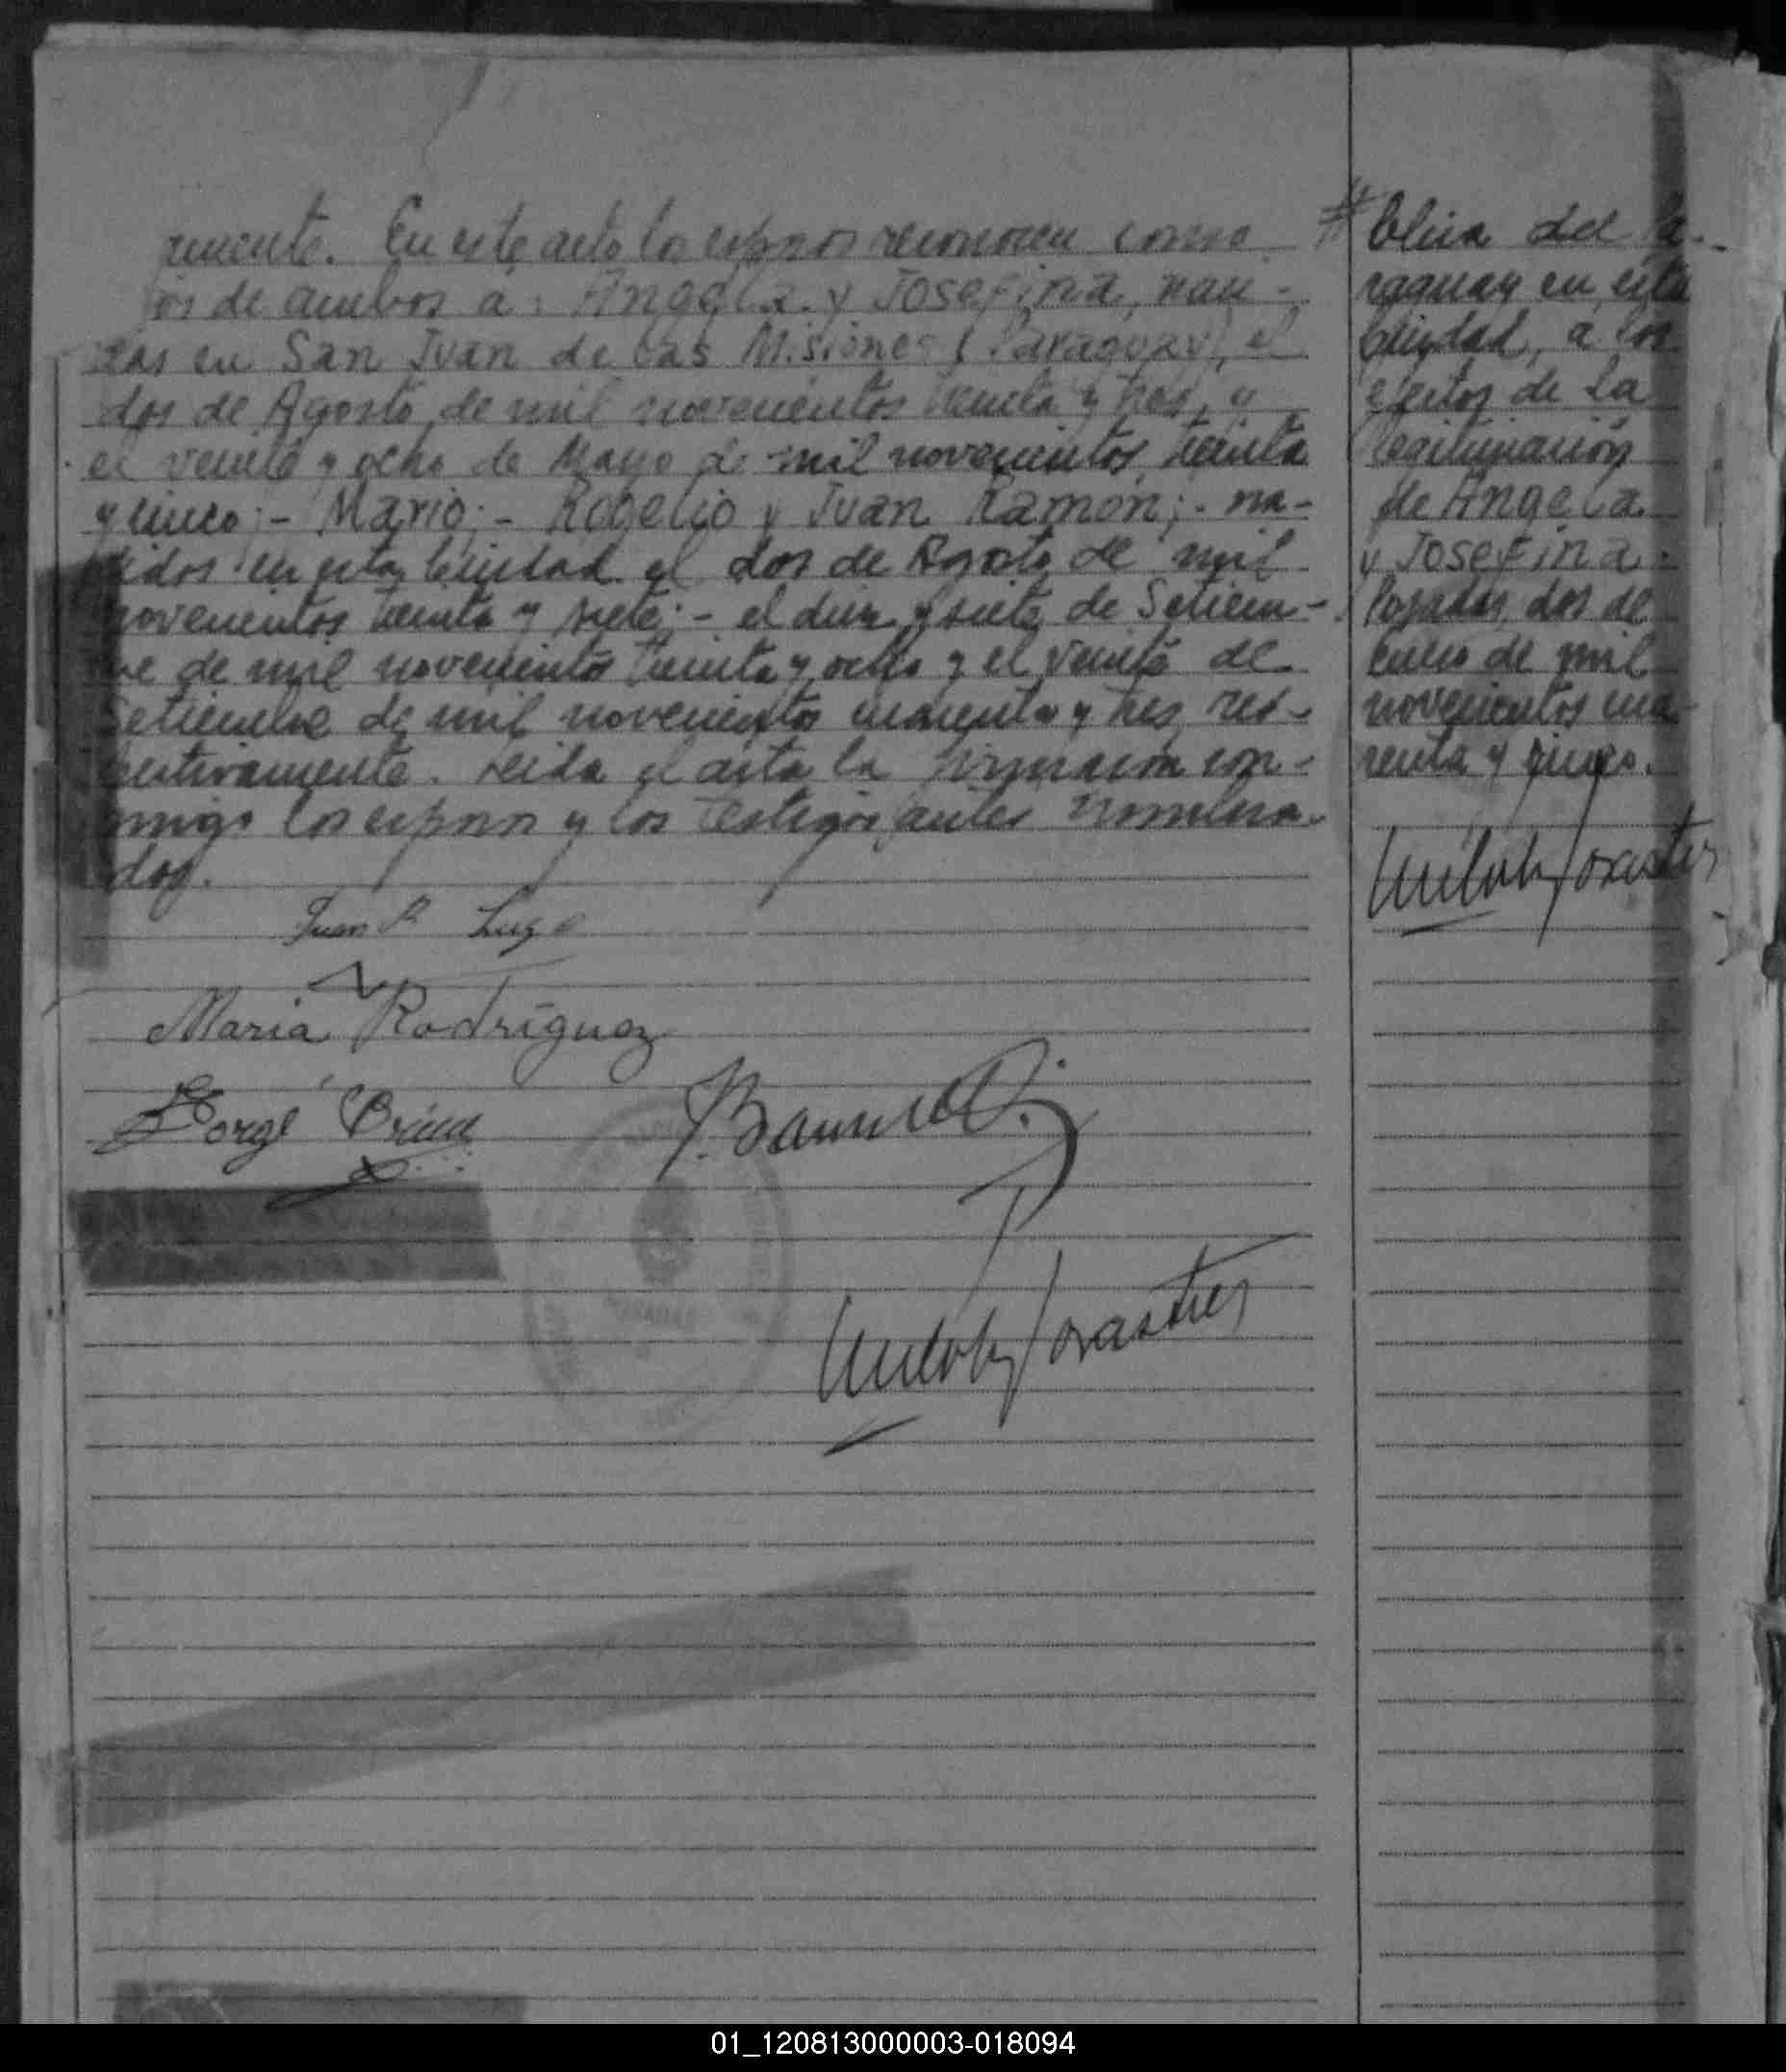 mente. En este acto los esposos reconocen como
jos de ambos a: Angela y Josefina, naci-
das en San Juan de las Misiones (Paraguay), el
dos de Agosto de mil novecientos treinta y tres, y
el veinte y ocho de Mayo de mil novecientos treinta
y cinco;- Mario;- Rogelio y Juan Ramón;- na-
cidos en esta Ciudad el dos de Agosto de mil
novecientos treinta y siete;- el diez y siete de Setiem-
bre de mil novecientos treinta y ocho y el veinte de
Setiembre de mil novecientos cuarenta y tres res-
pectivamente. Leida el acta la firmaron con-
migo los esposos y los testigos antes nombra-
dos.
Juan R Lugo
Maria Rodríguez
Jorge
POSADAS
# blica del Pa-
raguay en esta
Ciudad, a los
efectos de la
legitimación
de Angela
y Josefina.
Posadas, dos de
Enero de mil
novecientos cua-
renta y cinco.
01_120813000003-018094